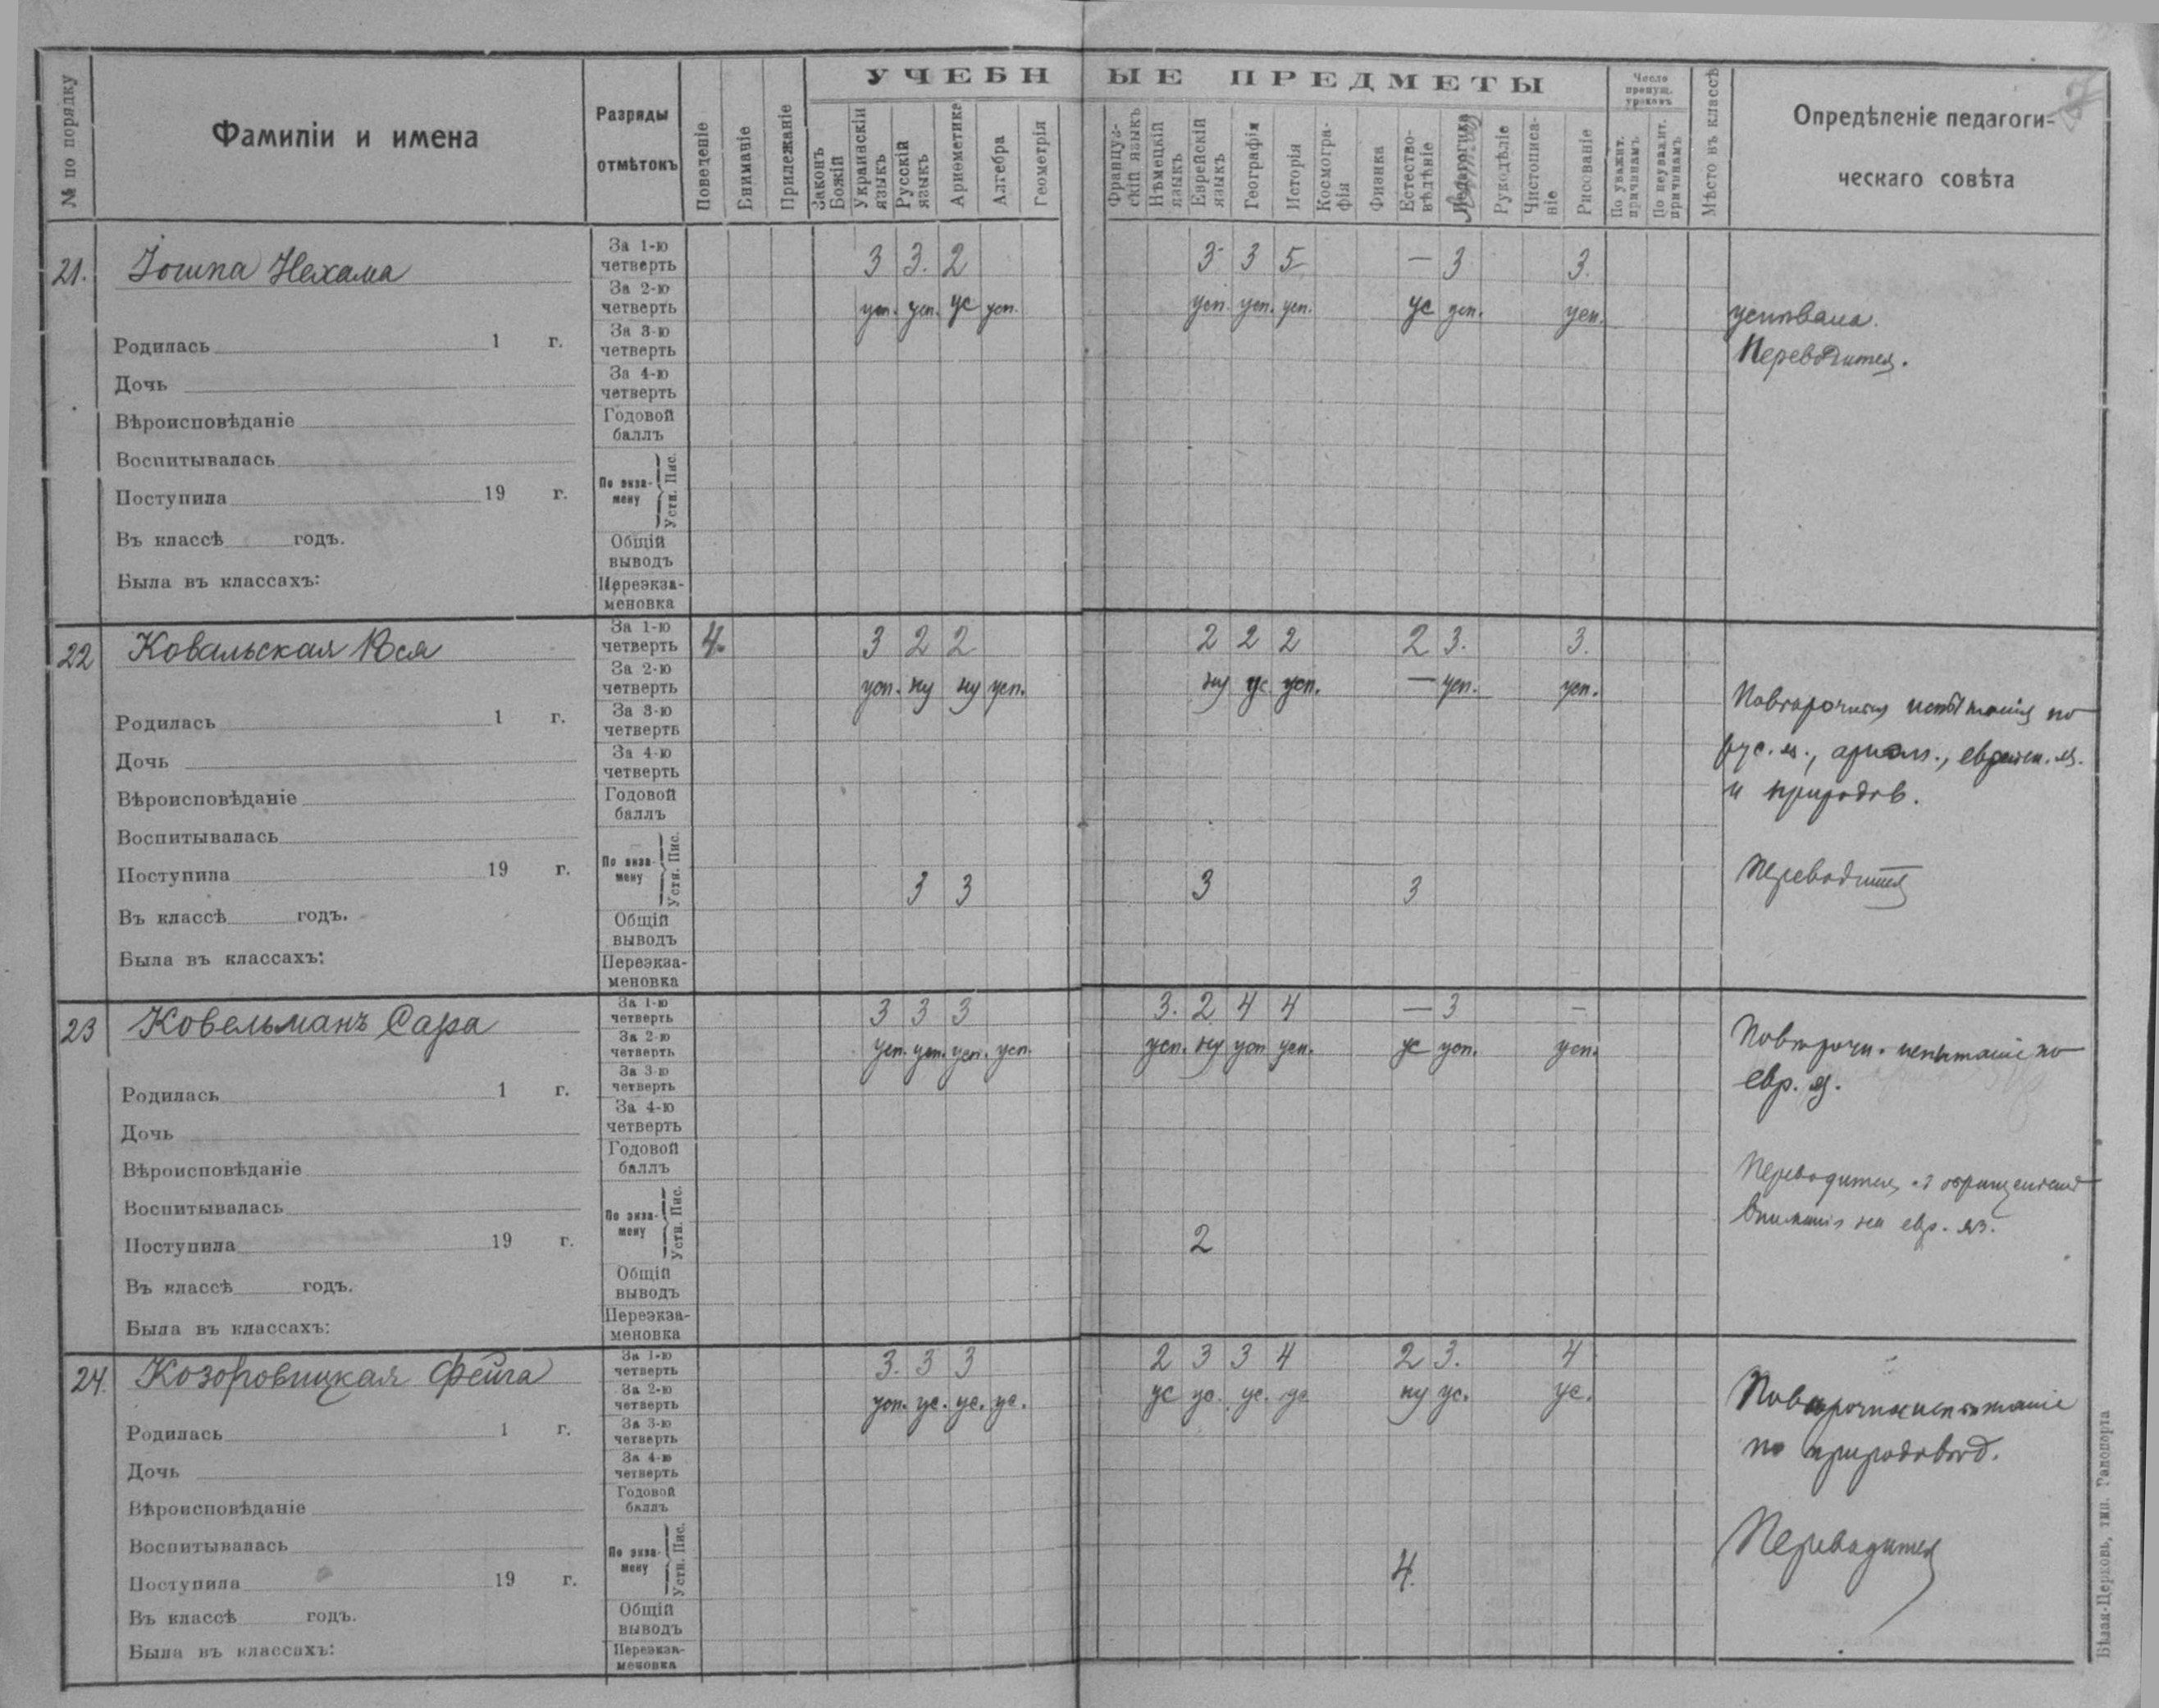 УЧЕБНЫЕ ПРЕДМЕТЫ
№ по порядку
Фамиліи и имена
Разряды
отмѣтокъ
Поведеніе
Вниманіе
Прилежаніе
Законъ Божій
Украинскій языкъ
Русскій языкъ
Ариѳметика
Алгебра
Геометрія
Француз-скій языкъ
Нѣмецкій языкъ
Еврейскій языкъ
Географія
Исторія
Космогра-фія
Физика
Естество-вѣдѣніе
Рукодѣліе
Чистописа-ніе
Рисованіе
Число пропущ. уроковъ
По уважит. причинамъ
По неуважит. причинамъ
Мѣсто въ классѣ
Опредѣленіе педагоги-
ческаго совѣта
21. Нехама
За 1-ю четверть 3 3. 2 3 3 5 — 3 3.
За 2-ю четверть усп. усп. ус усп. усп. усп. усп. ус усп. усп.
За 3-ю четверть
За 4-ю четверть
Годовой баллъ
По экза-мену Устн. Пис.
Общій выводъ
Переэкза-меновка
Родилась 1 г.
Дочь
Вѣроисповѣданіе
Воспитывалась
Поступила 19 г.
Въ классѣ годъ.
Была въ классахъ:
успѣвала.
Переводится.
22 Ковальская Юся
За 1-ю четверть 4. 3 2 2 2 2 2 2 3. 3.
За 2-ю четверть усп. ну ну усп. ну ус усп. — усп. усп.
За 3-ю четверть
За 4-ю четверть
Годовой баллъ
По экза-мену Устн. Пис. 3 3 3 3
Общій выводъ
Переэкза-меновка
Родилась 1 г.
Дочь
Вѣроисповѣданіе
Воспитывалась
Поступила 19 г.
Въ классѣ годъ.
Была въ классахъ:
испытанія по
рус. яз.,
и природов.
Переводится
23 Ковельманъ Сара
За 1-ю четверть 3 3 3 3. 2 4 4 — 3 –
За 2-ю четверть усп. усп. усп. усп. усп. ну усп усп. ус усп. усп.
За 3-ю четверть
За 4-ю четверть
Годовой баллъ
По экза-мену Устн. Пис. 2
Общій выводъ
Переэкза-меновка
Родилась 1 г.
Дочь
Вѣроисповѣданіе
Воспитывалась
Поступила 19 г.
Въ классѣ годъ.
Была въ классахъ:
Повторочн. испытаніе по
евр. яз.
Переводится
на евр. яз.
24. Козоровицкая Фейга
За 1-ю четверть 3. 3 3 2 3 3 4 2 3. 4
За 2-ю четверть усп. ус. ус. ус. ус ус. ус. ус ну ус. ус.
За 3-ю четверть
За 4-ю четверть
Годовой баллъ
По экза-мену Устн. Пис. 4.
Общій выводъ
Переэкза-меновка
Родилась 1 г.
Дочь
Вѣроисповѣданіе
Воспитывалась
Поступила 19 г.
Въ классѣ годъ.
Была въ классахъ:
по природовѣд.
Переводится
Бѣлая-Церковь, тип. Гапопорта